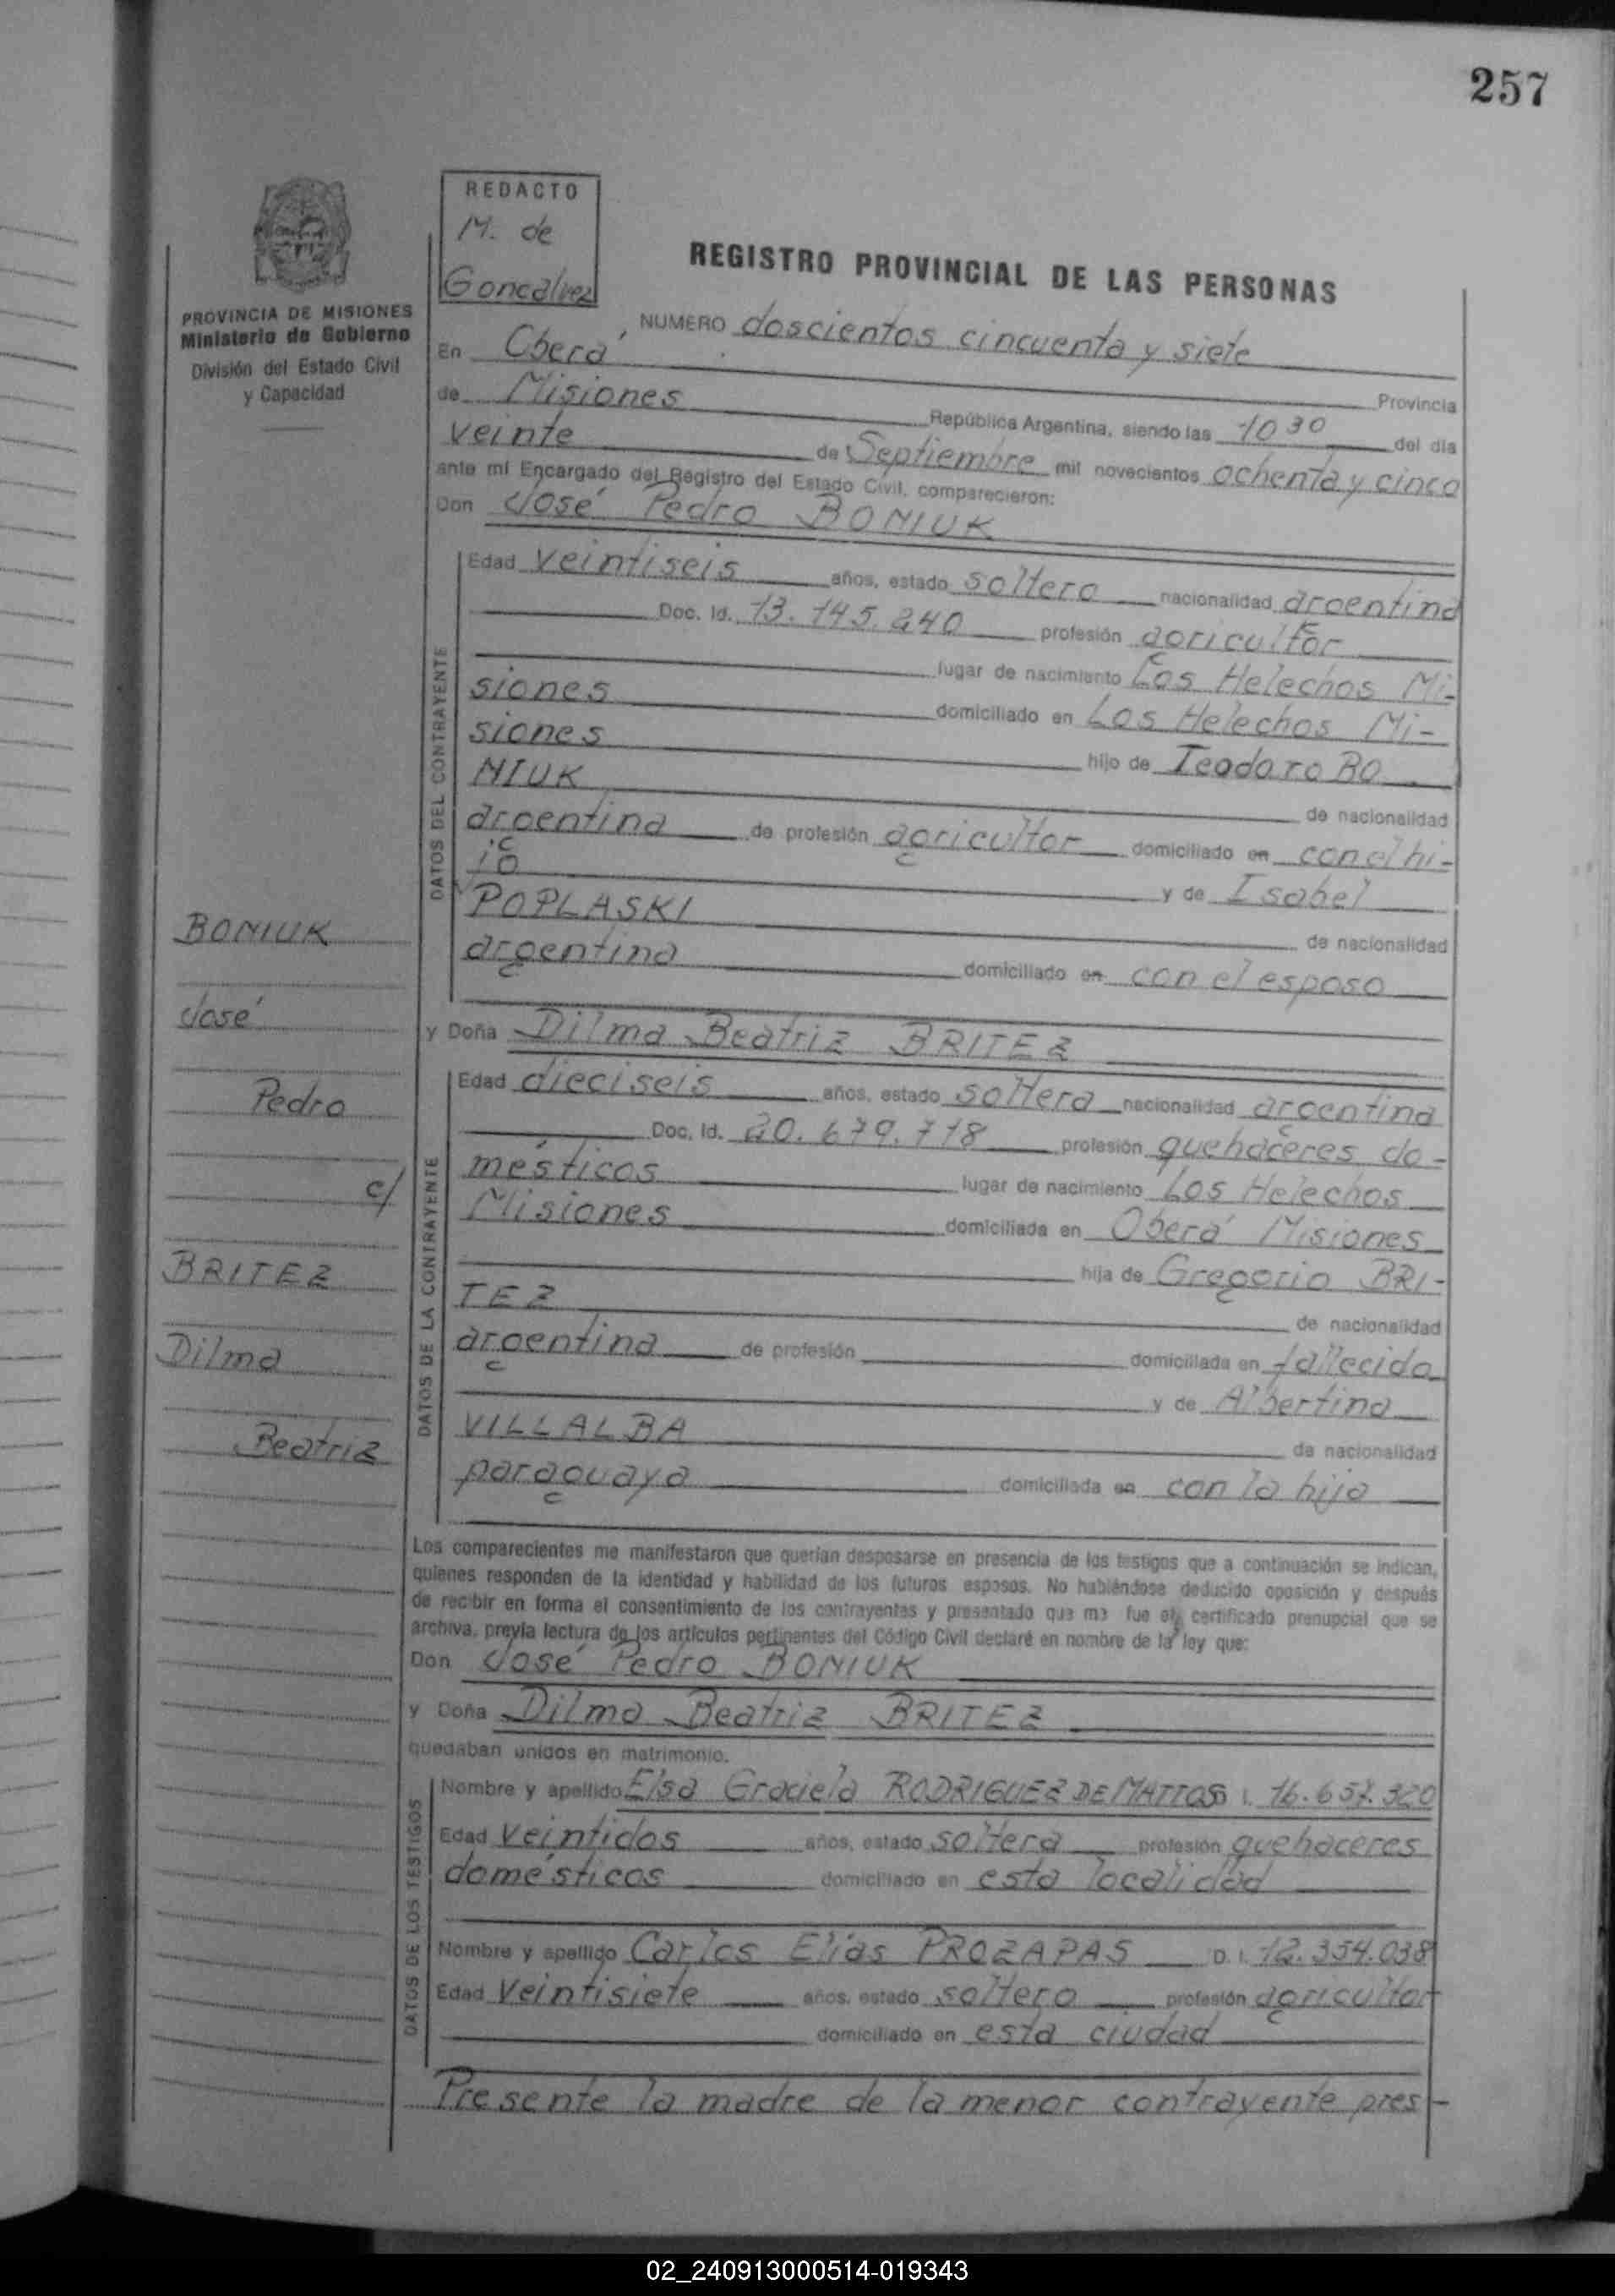 257
REDACTO
M. de
Goncalvez
PROVINCIA DE MISIONES
Ministerio de Gobierno
División del Estado Civil
y Capacidad
REGISTRO PROVINCIAL DE LAS PERSONAS
NUMERO doscientos cincuenta y siete
En Oberá Provincia
de Misiones República Argentina, siendo las 10 30 del día
veinte de Septiembre mil novecientos ochenta y cinco
ante mí Encargado del Registro del Estado Civil, comparecieron:
Don José Pedro BONIUK
DATOS DEL CONTRAYENTE
Edad veintiseis años, estado soltero nacionalidad argentina
Doc. Id. 13.145.240 profesión agricultor
lugar de nacimiento Los Helechos Mi-
siones domiciliado en Los Helechos Mi-
siones hijo de Teodoro BO
NIUK de nacionalidad
argentina de profesión agricultor domiciliado en con el hi-
jo y de Isabel
POPLASKI de nacionalidad
argentina domiciliado en con el esposo
y Doña Dilma Beatriz BRITEZ
DATOS DE LA CONTRAYENTE
Edad dieciseis años, estado soltera nacionalidad argentina
Doc. Id. 20.679.718 profesión quehaceres do-
mésticos lugar de nacimiento Los Helechos
Misiones domiciliada en Oberá Misiones
hija de Gregorio BRI-
TEZ de nacionalidad
argentina de profesión domiciliada en fallecido
y de Albertina
VILLALBA de nacionalidad
paraguaya domiciliada en con la hija
BONIUK
José
Pedro
c/
BRITEZ
Dilma
Beatriz
Los comparecientes me manifestaron que querían desposarse en presencia de los testigos que a continuación se indican,
quienes responden de la identidad y habilidad de los futuros esposos. No habiéndose deducido oposición y después
de recibir en forma el consentimiento de los contrayentes y presentado que me fue el certificado prenupcial que se
archiva, previa lectura de los artículos pertinentes del Código Civil declaré en nombre de la ley que:
Don José Pedro BONIUK
y Doña Dilma Beatriz BRITEZ
quedaban unidos en matrimonio.
DATOS DE LOS TESTIGOS
Nombre y apellido Elsa Graciela RODRIGUEZ DE MATTOS I. 16.657.320
Edad veintidos años, estado soltera profesión quehaceres
domésticos domiciliado en esta localidad
Nombre y apellido Carlos Elías PROZAPAS D. I. 12.354.038
Edad veintisiete años, estado soltero profesión agricultor
domiciliado en esta ciudad
Presente la madre de la menor contrayente pres-
02_240913000514-019343